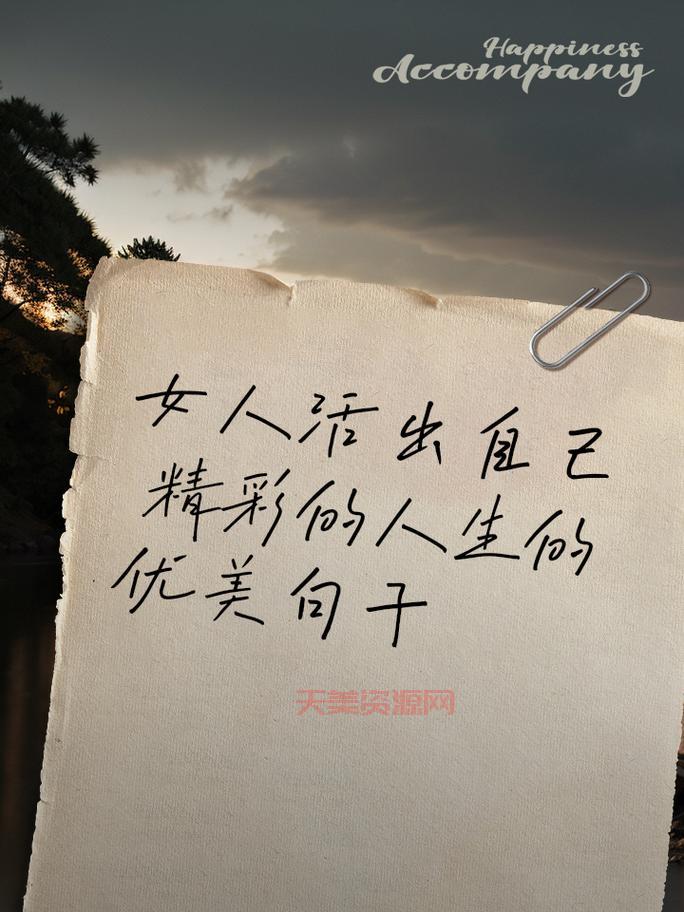 Happiness
Accompany
女人活出自己
精彩的人生的
优美句子
天美资源网